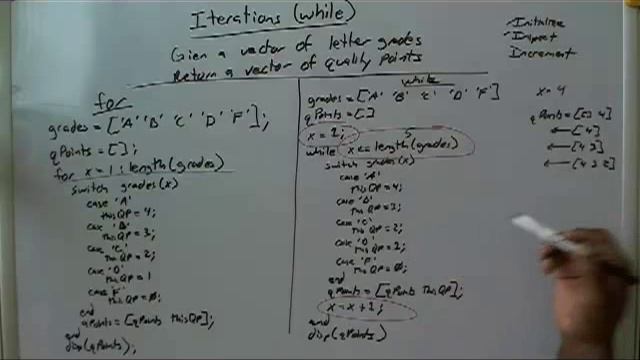 Iterations (while)
Given a vector of letter grades
Return a vector of quality points
Initialize
Inspect
Increment
for
grades = ['A' 'B' 'C' 'D' 'F'];
qPoints = [];
for x = 1 : length(grades)
switch grades(x)
case 'A'
thisQP = 4;
case 'B'
thisQP = 3;
case 'C'
thisQP = 2;
case 'D'
thisQP = 1
case 'F'
thisQP = 0;
end
qPoints = [qPoints thisQP];
end
disp(qPoints);
while
grades = ['A' 'B' 'C' 'D' 'F']
qPoints = []
x = 1;
5
while x <= length(grades)
switch grades(x)
case 'A'
thisQP = 4;
case 'B'
thisQP = 3;
case 'C'
thisQP = 2;
case 'D'
thisQP = 1;
case 'F'
thisQP = 0;
end
qPoints = [qPoints thisQP];
x = x + 1;
end
disp(qPoints)
x = 4
qPoints = [
[4]
[4 3]
[4 3 2]